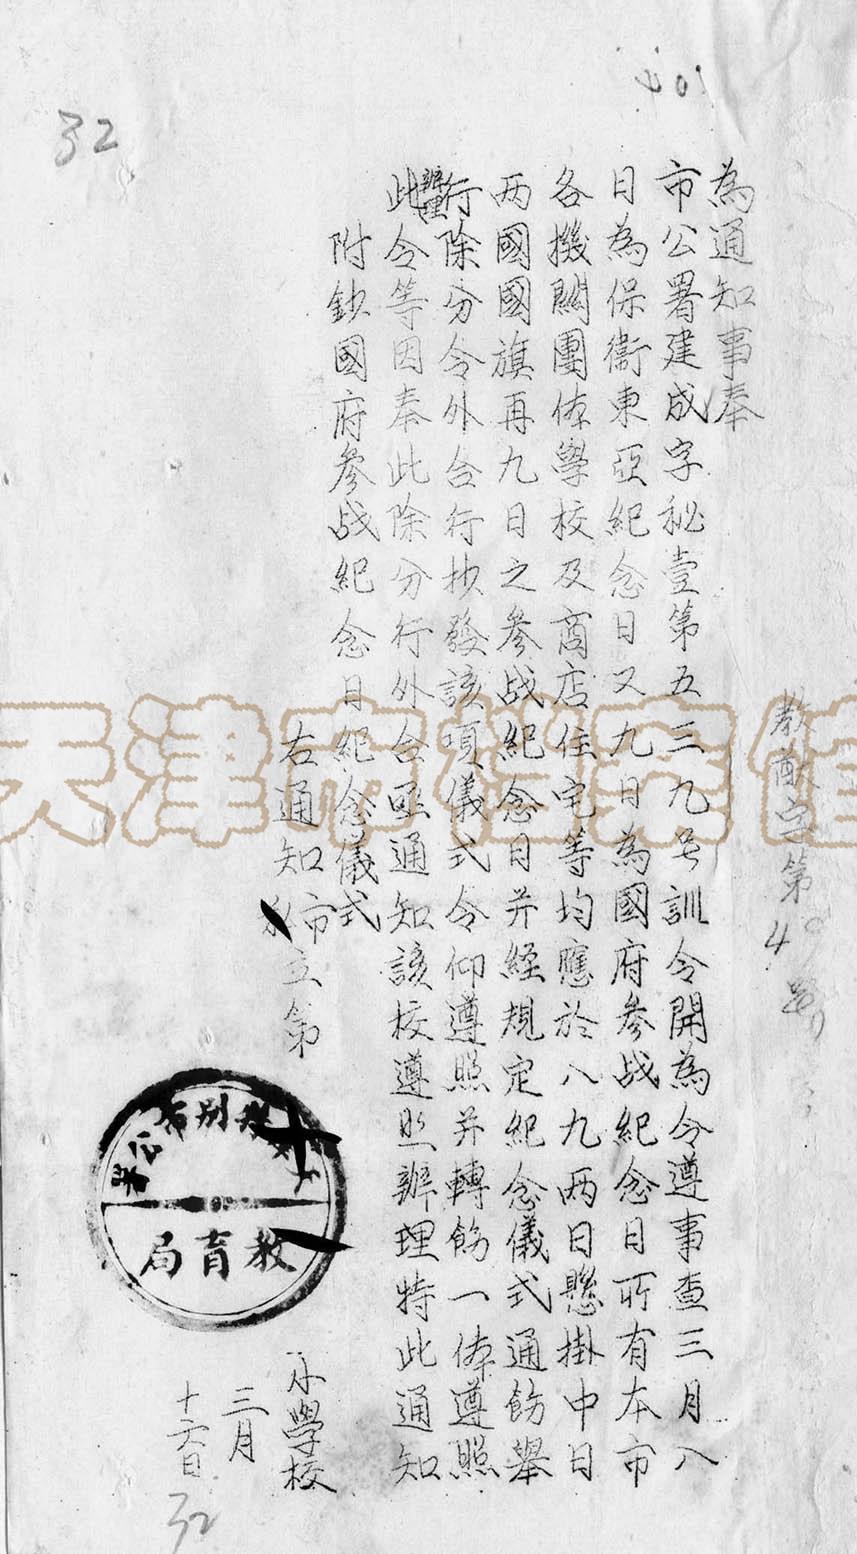 401
32
教猷字第49號
為通知事奉
市公署建成字秘壹第五三九号訓令開為令遵事查三月八
日為保衞東亞紀念日又九日為國府參战紀念日所有本市
各機關團体學校及商店住宅等均應於八九两日懸掛中日
两國國旗再九日之參战紀念日并経規定紀念儀式通飭舉
行除分令外合行抄發該項儀式令仰遵照并轉飭一体遵照
辦理
此令等因奉此除分行外合亟通知該校遵照辦理特此通知
附鈔國府參战紀念日紀念儀式
右通知市
立第
十一
小學校
天津特別市公署
教育局
三月
十六日
32
天津市档案馆